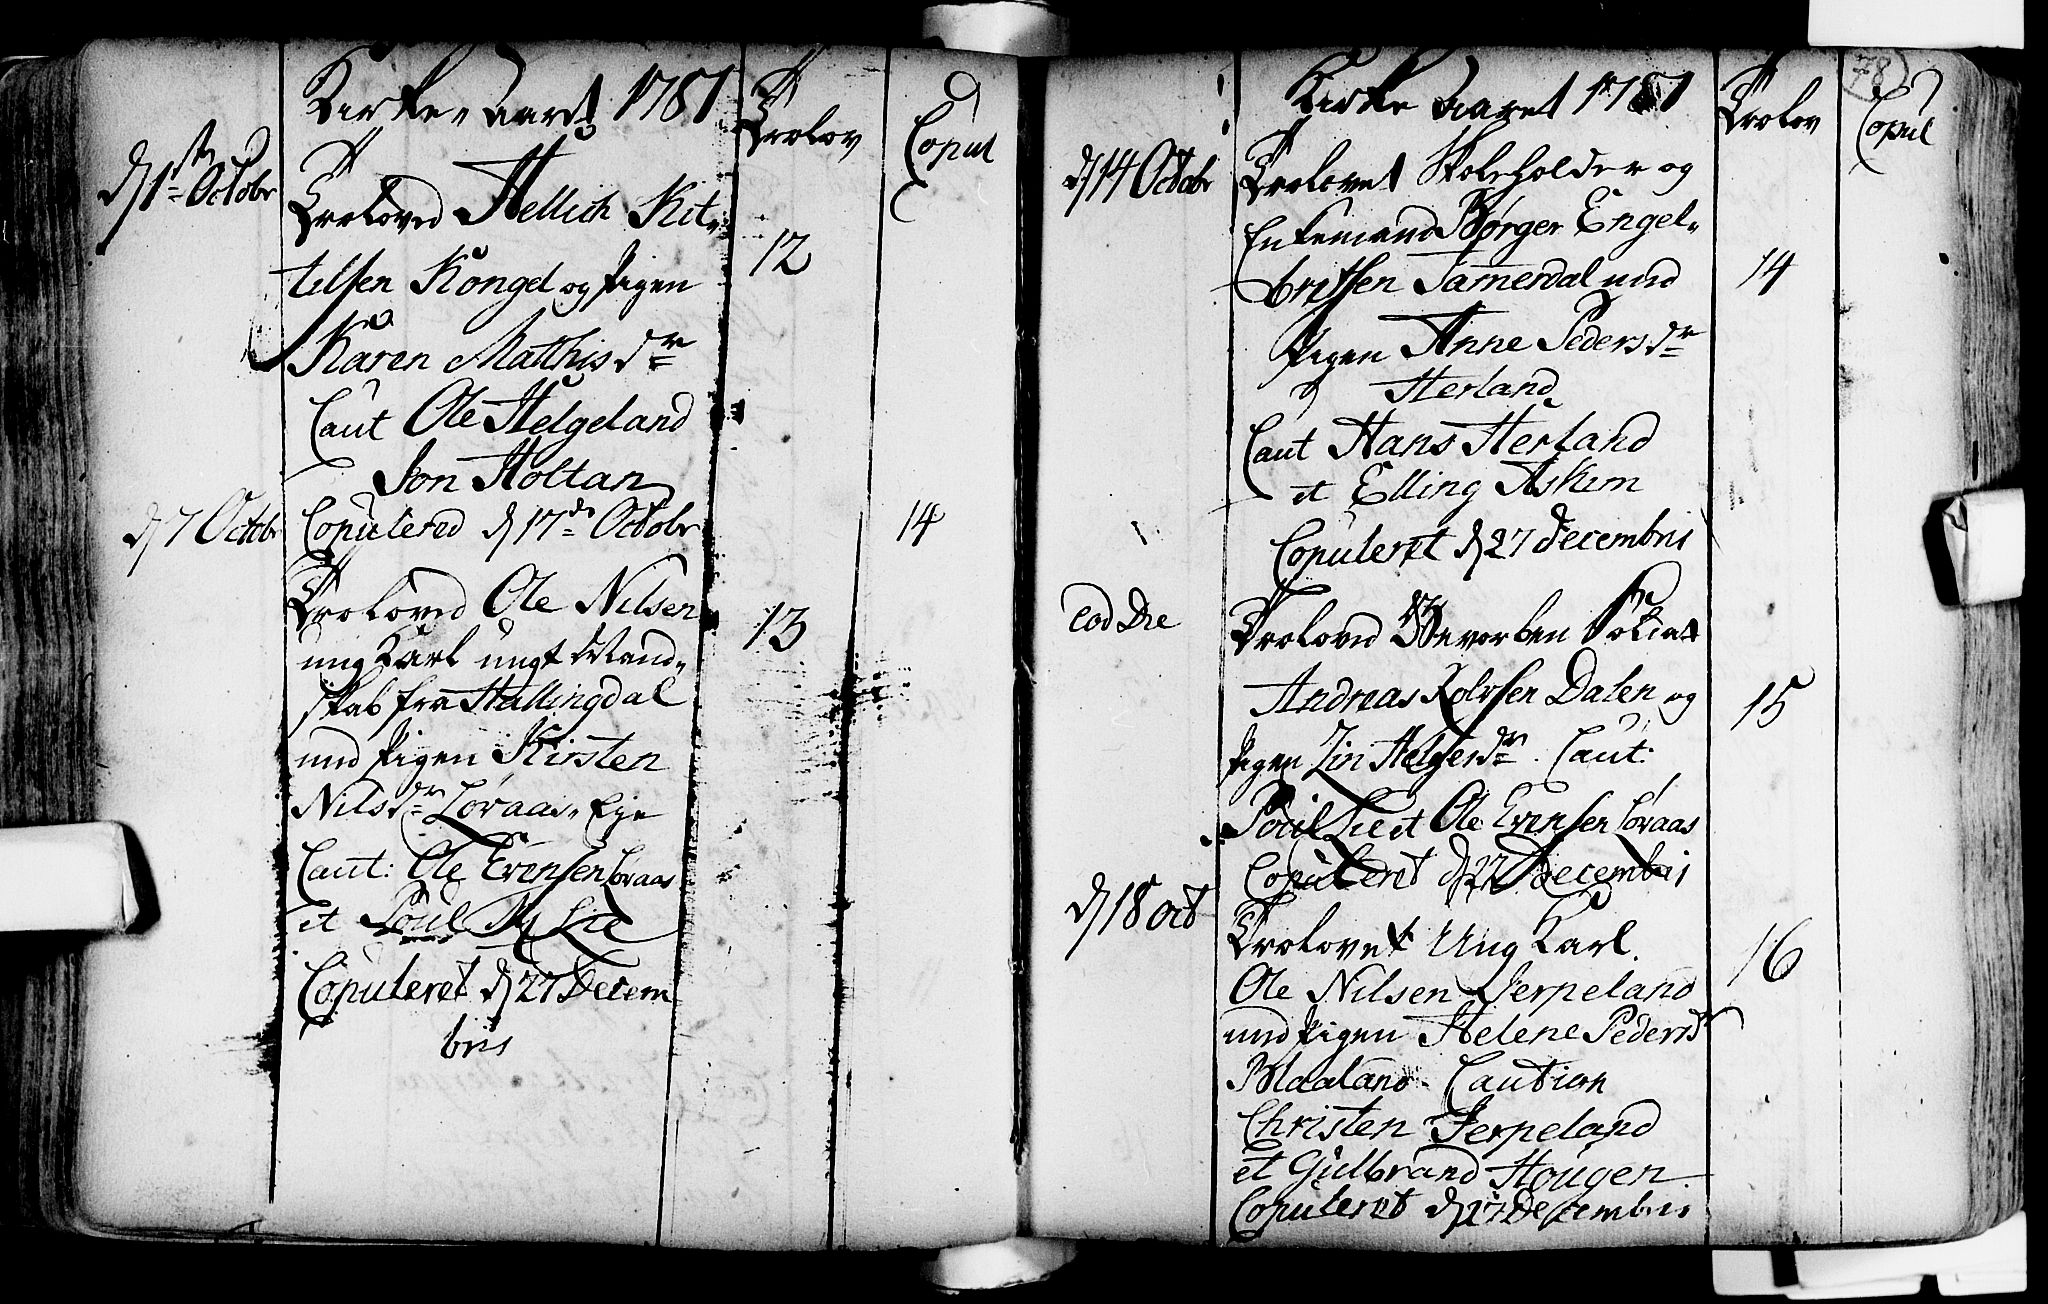 Kirke-Aaret 1781
Trolov
Copul
d 1ste Octobr
Troloved Hellich Kit-
telsen Kongel og Pigen
12
Karen Mathisdr
Caut Ole Helgeland
Jon Holtan
Copulered d 17de Octobr
14
d 7 Octobr
Troloved Ole Nilsen
ung Karl ungt Mand-
13
skab fra Hallingdal
med Pigen Kirsten
Nilsdr Loraas Eje
Caut: Ole Evensen Loraas
et Poul Lie
Copuleret d 27 Decem
bris
78
Kirke Aaret 1781
Trolov
Copul
d 14 Octobr
Trolovet Skoleholder og
Enkemand Børger Engel-
bretsen Tamerdal med
14
Pigen Anne Pedersdr
Herland
Caut Hans Herland
et Elling Askim
Copuleret d 27 Decembris
eod Die
Troloved Hverver Soldat
Andreas Rolvsen Dalen og
15
Pigen Lin Helgesdr. Caut:
Poul Lie et Ole Evensen Loraas
Copuleret d 27 Decembris
d 18 Oct
Trolovet Ung Karl.
16
Ole Nilsen Jerpeland
med Pigen Helene Pedersdr
Maaland Caution
Christen Jerpeland
et Gulbrand Hougen
Copuleret d 27 Decembris